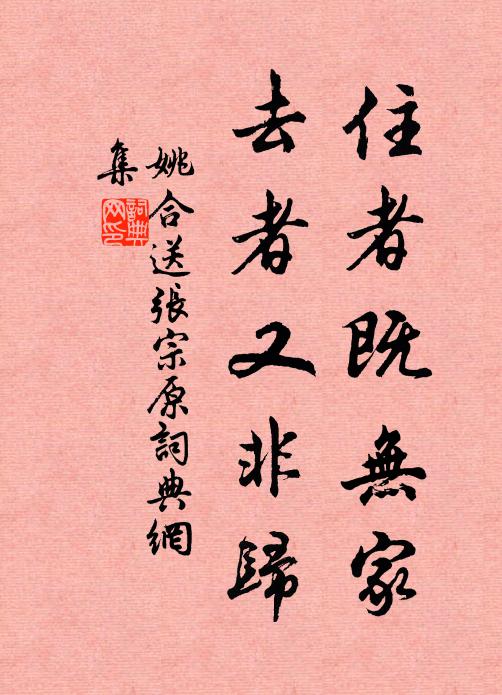 住者既無家
去者又非歸
姚合送張宗原詞典網
集
詞典
网印